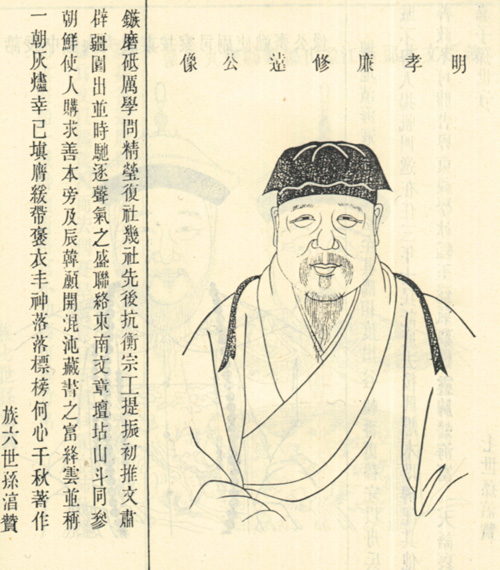 明孝廉修公像
鏃磨砥厲學問精瑩復社幾社先後抗衡宗工提振初推文肅
辟疆圓出並時馳逐聲氣之盛聯絡東南文章壇坫山斗同參
朝鮮使人購求善本旁及辰韓顧開混沌藏書之富絳雲並稱
一朝灰燼幸已塡膺緩帶褒衣丰神落落標榜何心千秋著作
族六世孫贊